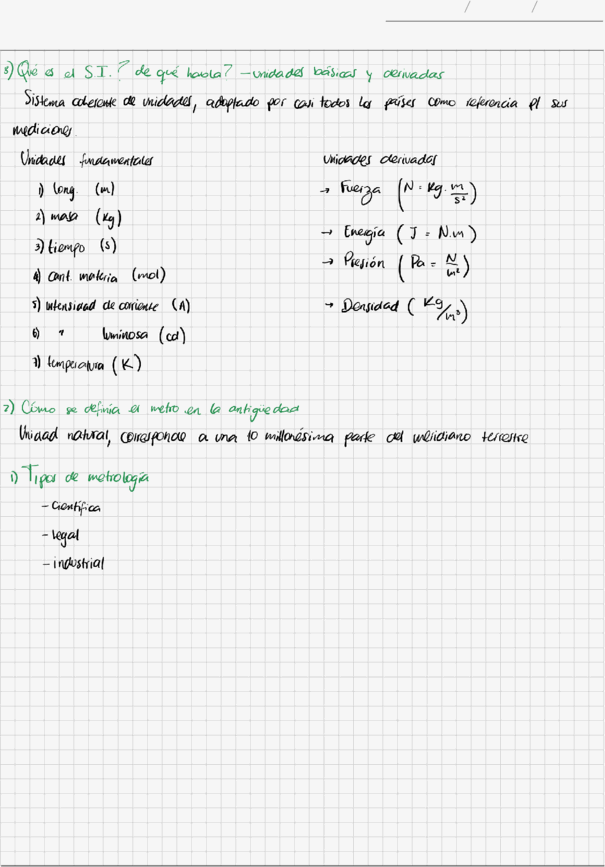 3) Qué es el S.I.? de qué habla? - unidades básicas y derivadas
Sistema coherente de unidades, adoptado por casi todos los países como referencia p/ sus
mediciones.
Unidades fundamentales
1) long. (m)
2) masa (kg)
3) tiempo (s)
4) cant. materia (mol)
5) intensidad de corriente (A)
6) " luminosa (cd)
7) temperatura (K)
unidades derivadas
→ Fuerza (N = kg · m/s²)
→ Energía (J = N.m)
→ Presión (Pa = N/m²)
→ Densidad (kg/m³)
2) Cómo se definía el metro en la antigüedad
Unidad natural, corresponde a una 10 millonésima parte del meridiano terrestre
1) Tipos de metrología
- Científica
- legal
- industrial